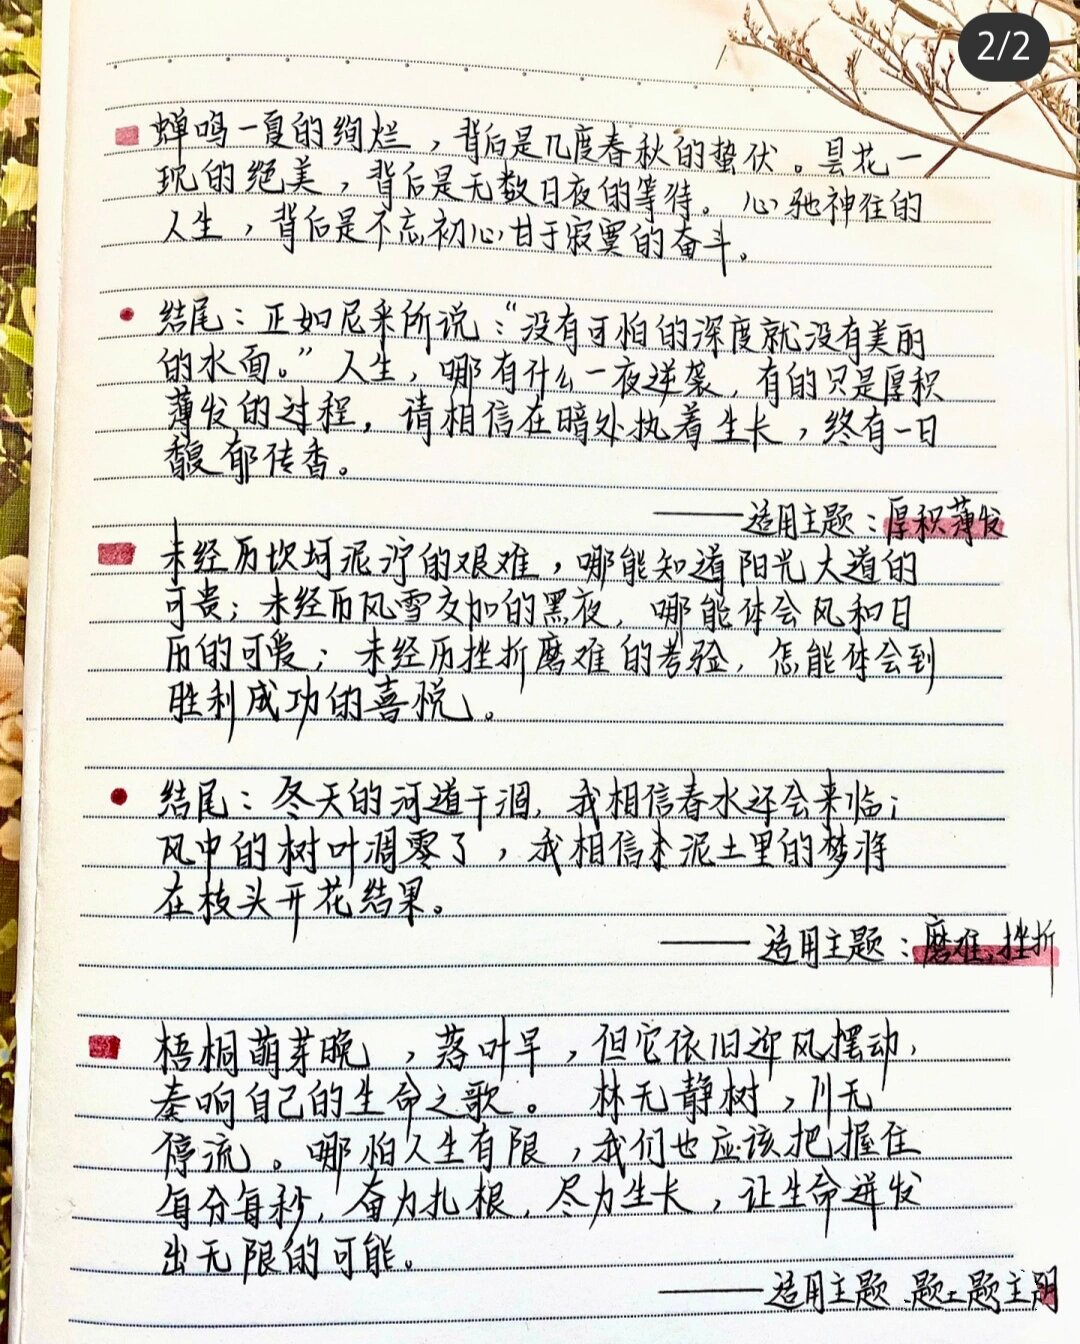 2/2
蝉鸣一夏的绚烂，背后是几度春秋的蛰伏。昙花一
现的绝美，背后是无数日夜的等待。心驰神往的
人生，背后是不忘初心甘于寂寞的奋斗。
结尾：正如尼采所说："没有可怕的深度就没有美丽
的水面。"人生，哪有什么一夜逆袭，有的只是厚积
薄发的过程，请相信在暗处执着生长，终有一日
馥郁传香。
——适用主题：厚积薄发
未经历坎坷泥泞的艰难，哪能知道阳光大道的
可贵；未经历风雪交加的黑夜，哪能体会风和日
历的可爱；未经历挫折磨难的考验，怎能体会到
胜利成功的喜悦。
结尾：冬天的河道干涸，我相信春水还会来临；
风中的树叶凋零了，我相信泥土里的梦将
在枝头开花结果。
——适用主题：磨难、挫折
梧桐萌芽晚，落叶早，但它依旧迎风摆动，
奏响自己的生命之歌。林无静树，川无
停流。哪怕人生有限，我们也应该把握住
每分每秒，奋力扎根，尽力生长，让生命迸发
出无限的可能。
——适用主题